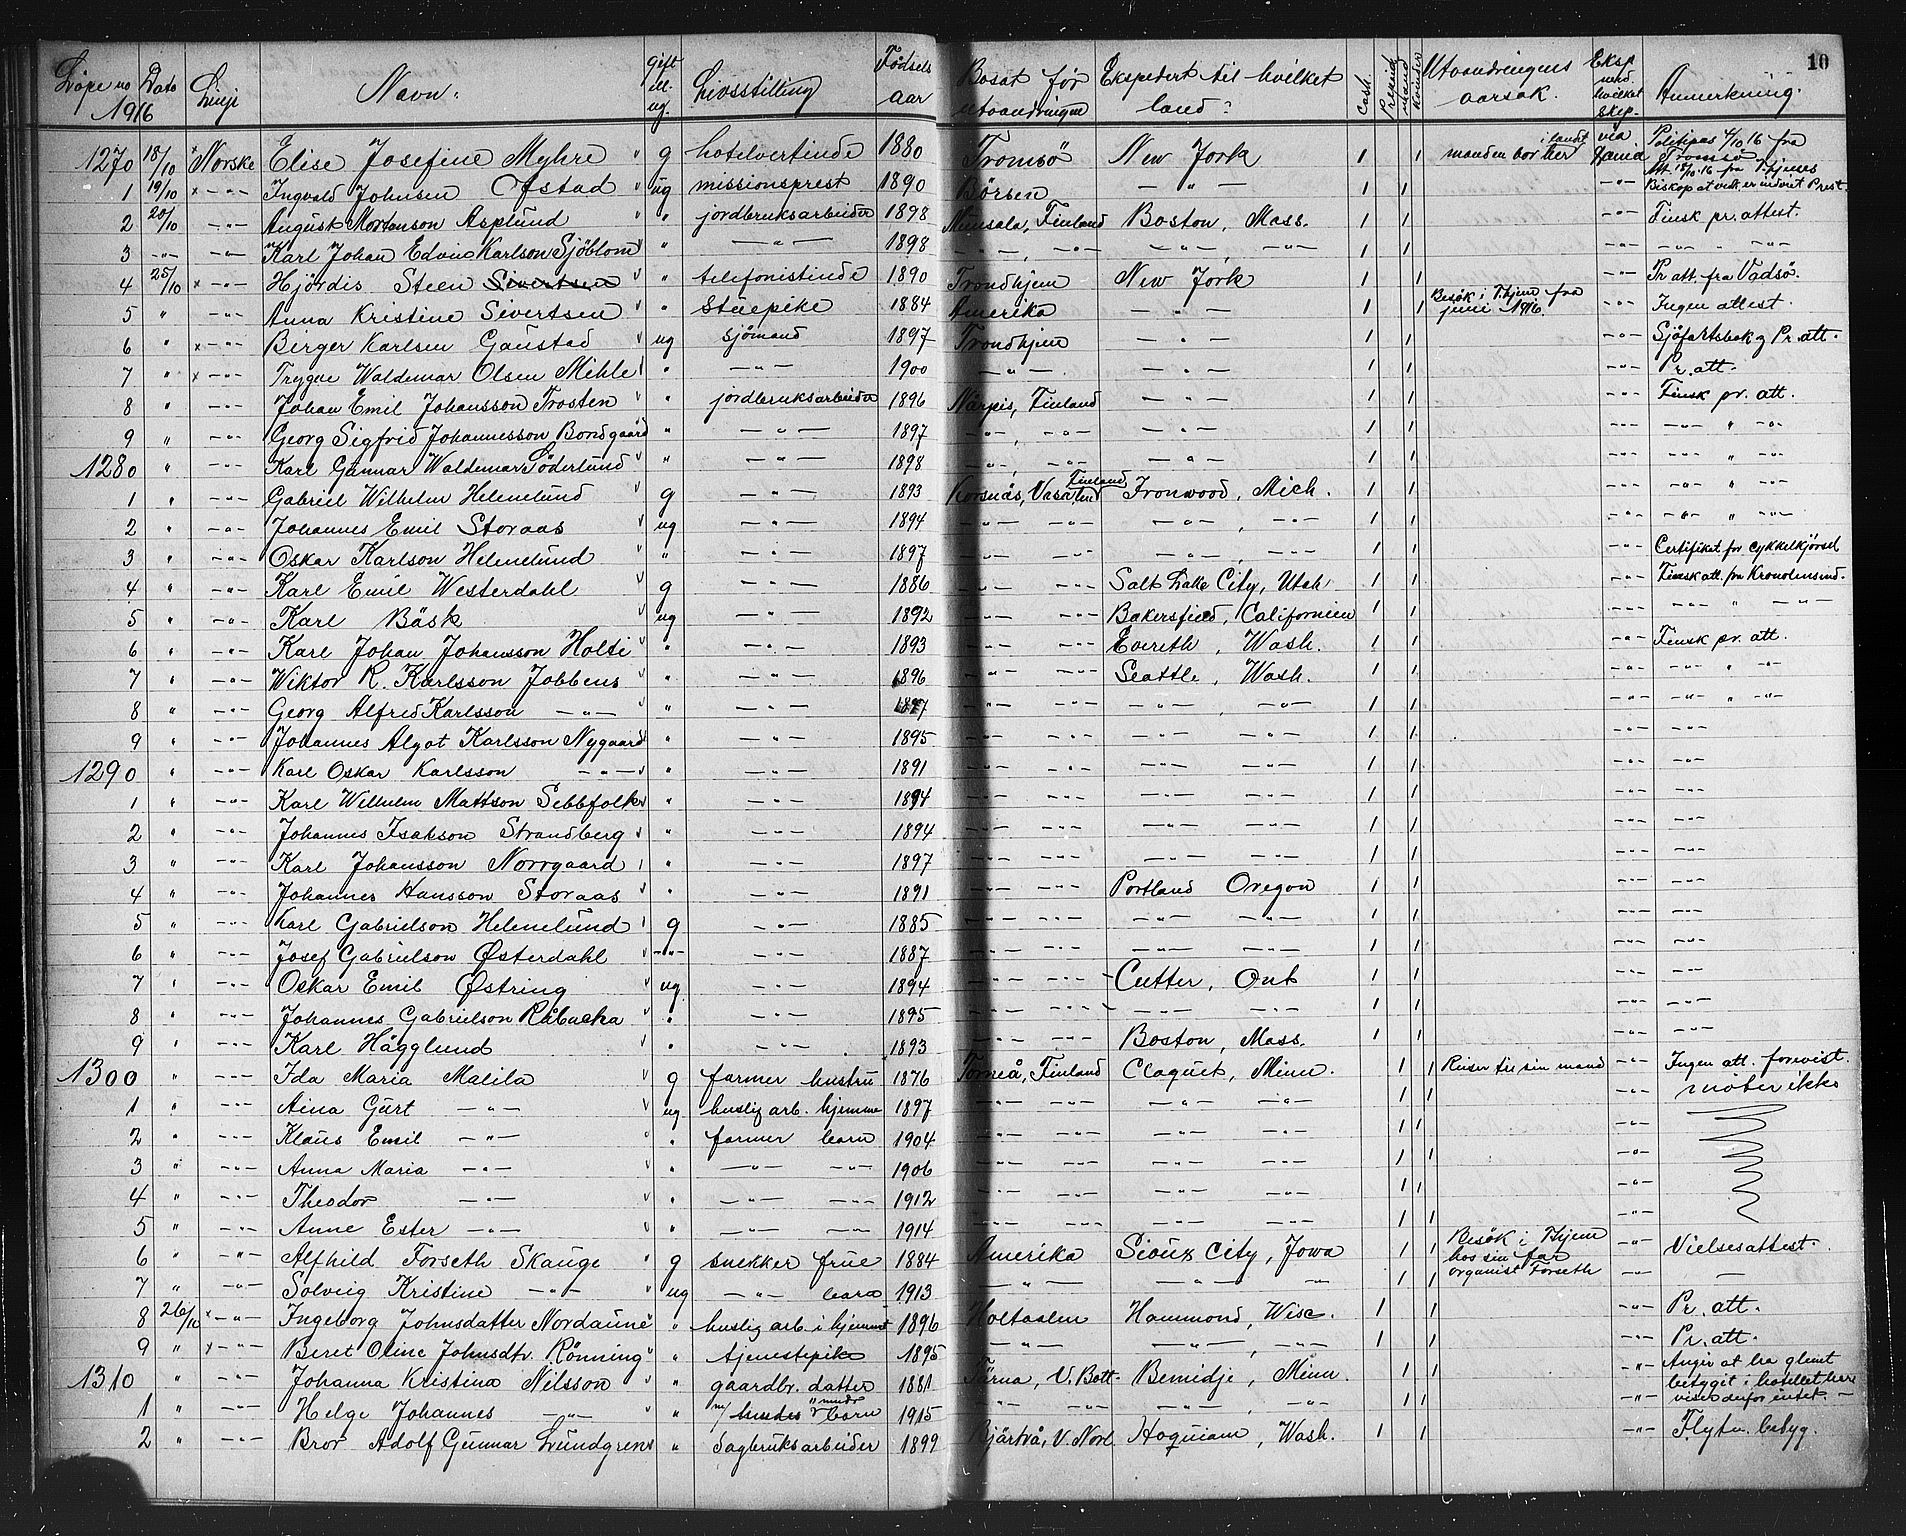 10
Löpe no 1916 Dato Linji Navn. gift ell. ug. Livsstilling Födsels aar Bosat før utvandringen Ekspedert til hvilket land? Cash Prepaid Mand Kvinder Utvandringens aarsak. Eksp med hvilket skip. Anmerkning.
1270 18/10 x Norske Elise Josefine Myhre " g hotelvertinde 1880 Tromsö New York 1 1 manden bor her i landet via Politipas 4/10 16 fra Tromsö
1 19/10 x -"- Ingvald Johnsen Ofstad " ug missionsprest 1890 Börsen -"- 1 1 -"- Att. 18/10 16 fra Thjems Biskop at vedk. er indviet Prest.
2 20/10 -"- August Mortenson Asplund " " jordbruksarbeider 1898 Munsala, Finland Boston, Mass. 1 1 -"- Finsk pr. attest.
3 -"- -"- Karl Johan Edvin Karlson Sjöblom " " -"- 1898 -"-, -"- -"- -"- 1 1 -"- -"- -"- -"-
4 25/10 x -"- Hjördis Steen Sivertsen " " telefonistinde 1890 Trondhjem New York 1 1 -"- Pr att. fra Vadsö.
5 " -"- Anna Kristine Sivertsen " " Stuepike 1884 Amerika -"- 1 1 Besök i Thjem fra juni 1916. -"- Ingen attest.
6 " x -"- Berger Karlsen Gaustad " ug sjömand 1897 Trondhjem -"- 1 1 -"- Sjöfartsbok og Pr. att.
7 " x -"- Trygve Waldemar Olsen Mihle " " -"- 1900 -"- -"- 1 1 -"- Pr. att.
8 " -"- Johan Emil Johansson Trosten " " jordbruksarbeider 1896 Närpis, Finland -"- 1 1 -"- Finsk pr. att.
9 " -"- Georg Sigfrid Johannesson Bondgaard " -"- 1897 -"-, -"- -"- 1 1 -"- -"- " -"-
1280 " -"- Karl Gunnar Waldemar Söderlund " " -"- 1898 -"-, -"- -"- 1 1 -"- -"- " -"-
1 " -"- Gabriel Wilhelm Helenelund " g -"- 1893 Korsnäs, Vasa, Finland Ironwood, Mich. 1 1 -"- -"- " -"-
2 " -"- Johannes Emil Storaas " ug -"- 1894 -"- -"- -"-, -"- 1 1 -"- -"- " -"-
3 " -"- Oskar Karlson Helenelund " -"- 1897 -"- -"- -"-, -"- 1 1 -"- Certifikat for cykkelkjörsel
4 " -"- Karl Emil Westerdahl " g -"- 1886 -"- -"- Salt Lake City, Utah 1 1 -"- Finsk att. fra Kronolensmd.
5 " -"- Karl Bäsk " ug -"- 1892 -"- -"- Bakersfield, Californien 1 1 -"- -"- " -"-
6 " -"- Karl Johan Johansson Holti " " -"- 1893 -"- -"- Evereth, Wash. 1 1 -"- Finsk pr. att.
7 " -"- Wiktor R. Karlsson Jobbens " " -"- 1896 -"- -"- Seattle, Wash. 1 1 -"- -"- " -"-
8 " -"- Georg Alfred Karlsson -"- " " -"- 1897 -"- -"- -"-, -"- 1 1 -"- -"- " -"-
9 " -"- Johannes Algot Karlsson Nygaard " " -"- 1895 -"- -"- -"- -"- 1 1 -"- -"-
1290 " -"- Karl Oskar Karlsson -"- " " -"- 1891 -"- -"- -"- -"- 1 1 -"- -"-
1 " -"- Karl Wilhelm Mattson Sebbfolk " " -"- 1894 -"- -"- -"- -"- 1 1 -"- -"-
2 " -"- Johannes Isakson Strandberg " " -"- 1894 -"- -"- -"- -"- 1 1 -"- -"-
3 " -"- Karl Johansson Norrgaard " " -"- 1897 -"- -"- -"- -"- 1 1 -"- -"-
4 " -"- Johannes Hansson Storaas " " -"- 1891 -"- -"- Portland Oregon 1 1 -"- -"-
5 " -"- Karl Gabrielson Helenelund " g -"- 1885 -"- -"- -"- -"- 1 1 -"- -"-
6 " -"- Josef Gabrielson Østerdahl " -"- -"- 1887 -"- -"- -"- -"- 1 1 -"- -"-
7 " -"- Oskar Emil Østring " ug -"- 1894 -"- -"- Cutter, Ont 1 1 -"- -"-
8 " -"- Johannes Gabrielson Råbacka " " -"- 1895 -"- -"- -"- -"- 1 1 -"- -"-
9 " -"- Karl Hägglund " -"- 1893 -"- -"- Boston, Mass. 1 1 -"- -"-
1300 " -"- Ida Maria Malila " g farmer hustru 1876 Torneå, Finland Cloquet, Minn. 1 1 Reiser til sin mand -"- Ingen att. forevist.
1 " -"- Aina Gurt -"- " ug huslig arb. hjemme 1897 -"- -"- -"- -"- 1 1 -"- möter ikke
2 " -"- Klaus Emil -"- " " farmer barn 1904 -"- -"- -"- -"- 1 1 -"-
3 " -"- Anna Maria -"- " " -"- -"- 1906 -"- -"- -"- -"- 1 1 -"-
4 " -"- Theodor -"- " " -"- -"- 1912 -"- -"- -"- -"- 1 1 -"-
5 " -"- Anne Ester -"- " " -"- -"- 1914 -"- -"- -"- -"- 1 1 -"-
6 " -"- Alfhild Forseth Skauge " g snekker frue 1884 Amerika Sioux City, Iowa 1 1 Besök i Thjem hos sin far organist Forseth -"- Vielsesattest.
7 " -"- Solveig Kristine -"- " ug -"- barn 1913 -"- -"- -"- 1 1 -"- —
8 26/10 x -"- Ingeborg Johnsdatter Nordaune " " huslig arb. i hjemmet 1896 Holtaalen Hammond, Wisc. 1 1 -"- Pr. att.
9 " x -"- Beret Oline Johnsdtr Rönning " " tjenestepike 1895 -"- -"-, -"- 1 1 -"- Pr. att.
1310 " -"- Johanna Kristina Nilsson " " gaardbr. datter 1881 Tärna, V. Bott. Bemidje, Minn. 1 1 -"- Angiv at ha glemt betyget i hotellet her
1 " -"- Helge Johannes -"- " " m/ hendes 11 mndr barn 1915 -"- -"- -"-, -"- 1 1 -"- viser derfor intet.—
2 " -"- Bror Adolf Gunnar Lundgren " " sagbruksarbeider 1899 Bjärtrå, V. Norl. Hoquiam, Wash. 1 1 -"- Flytn. betyg.